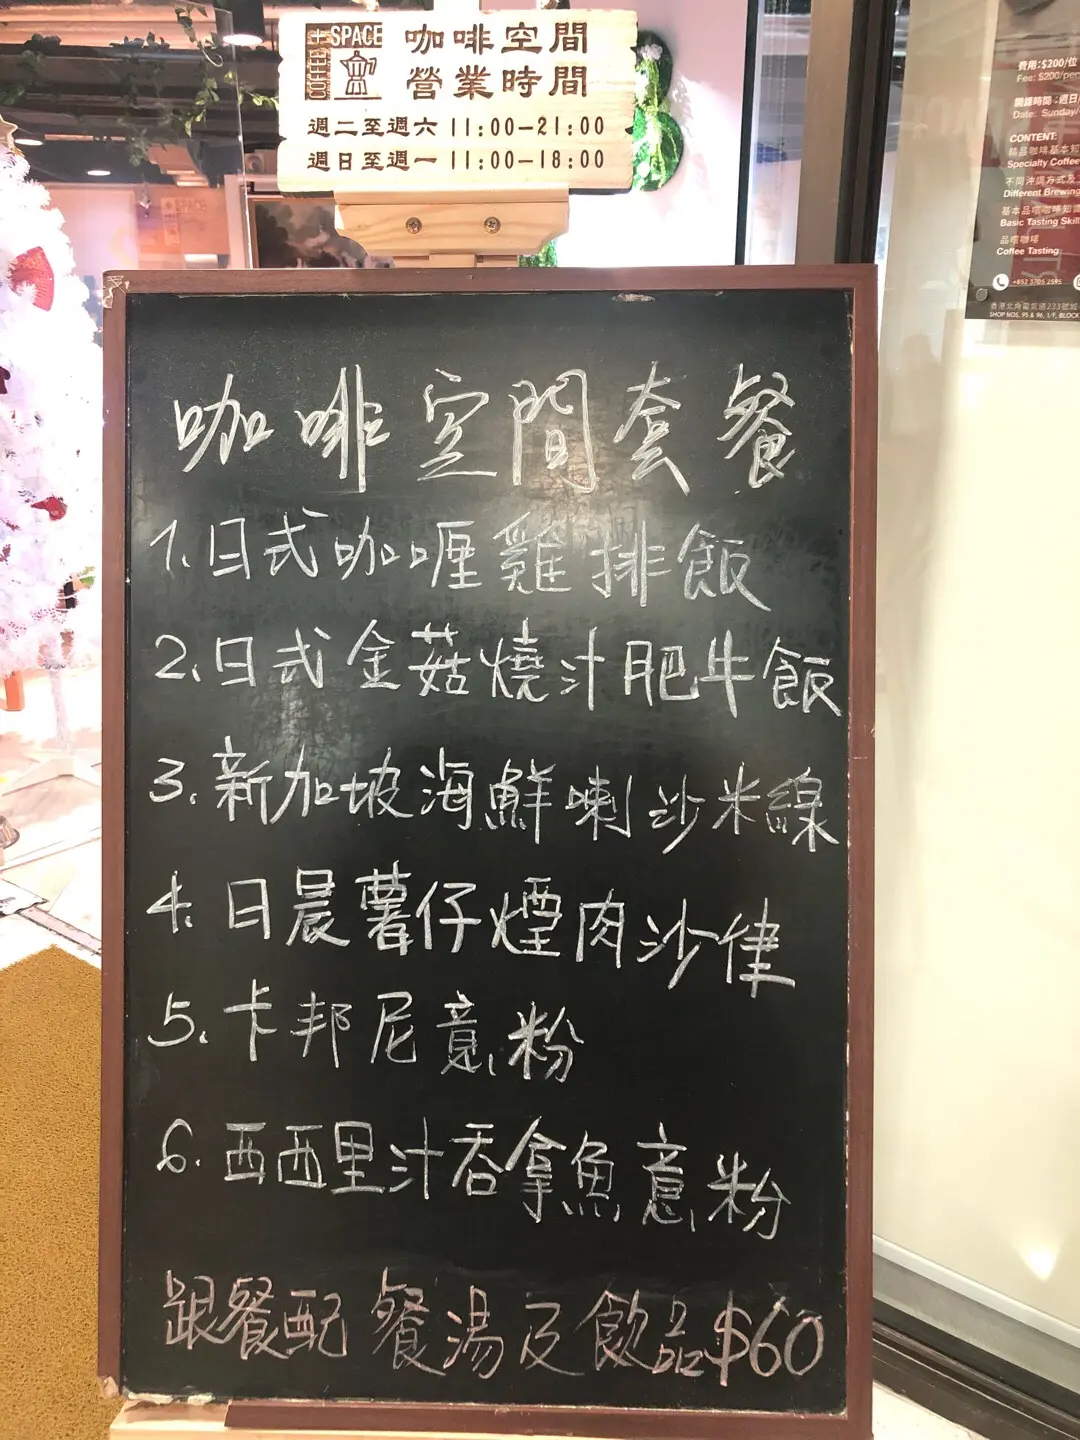 COFFEE+ SPACE
咖啡空間
營業時間
週二至週六 11:00-21:00
週日至週一 11:00-18:00
費用:$200/位
Fee: $200/per
開課時間:週日
Date: Sunday/
CONTENT:
精品咖啡基本知
Specialty Coffee
不同沖調方式及
Different Brewing
基本品嚐咖啡知識
Basic Tasting Skill
品嚐咖啡
Coffee Tasting
+852 3705 2595
香港北角電氣道233號城
SHOP NOS. 95 & 96, 1/F, BLOCK
咖啡空間套餐
1.日式咖喱雞排飯
2.日式金菇燒汁肥牛飯
3.新加坡海鮮喇沙米線
4.日晨薯仔煙肉沙律
5.卡邦尼意粉
6.西西里汁吞拿魚意粉
跟餐配 餐湯及飲品$60